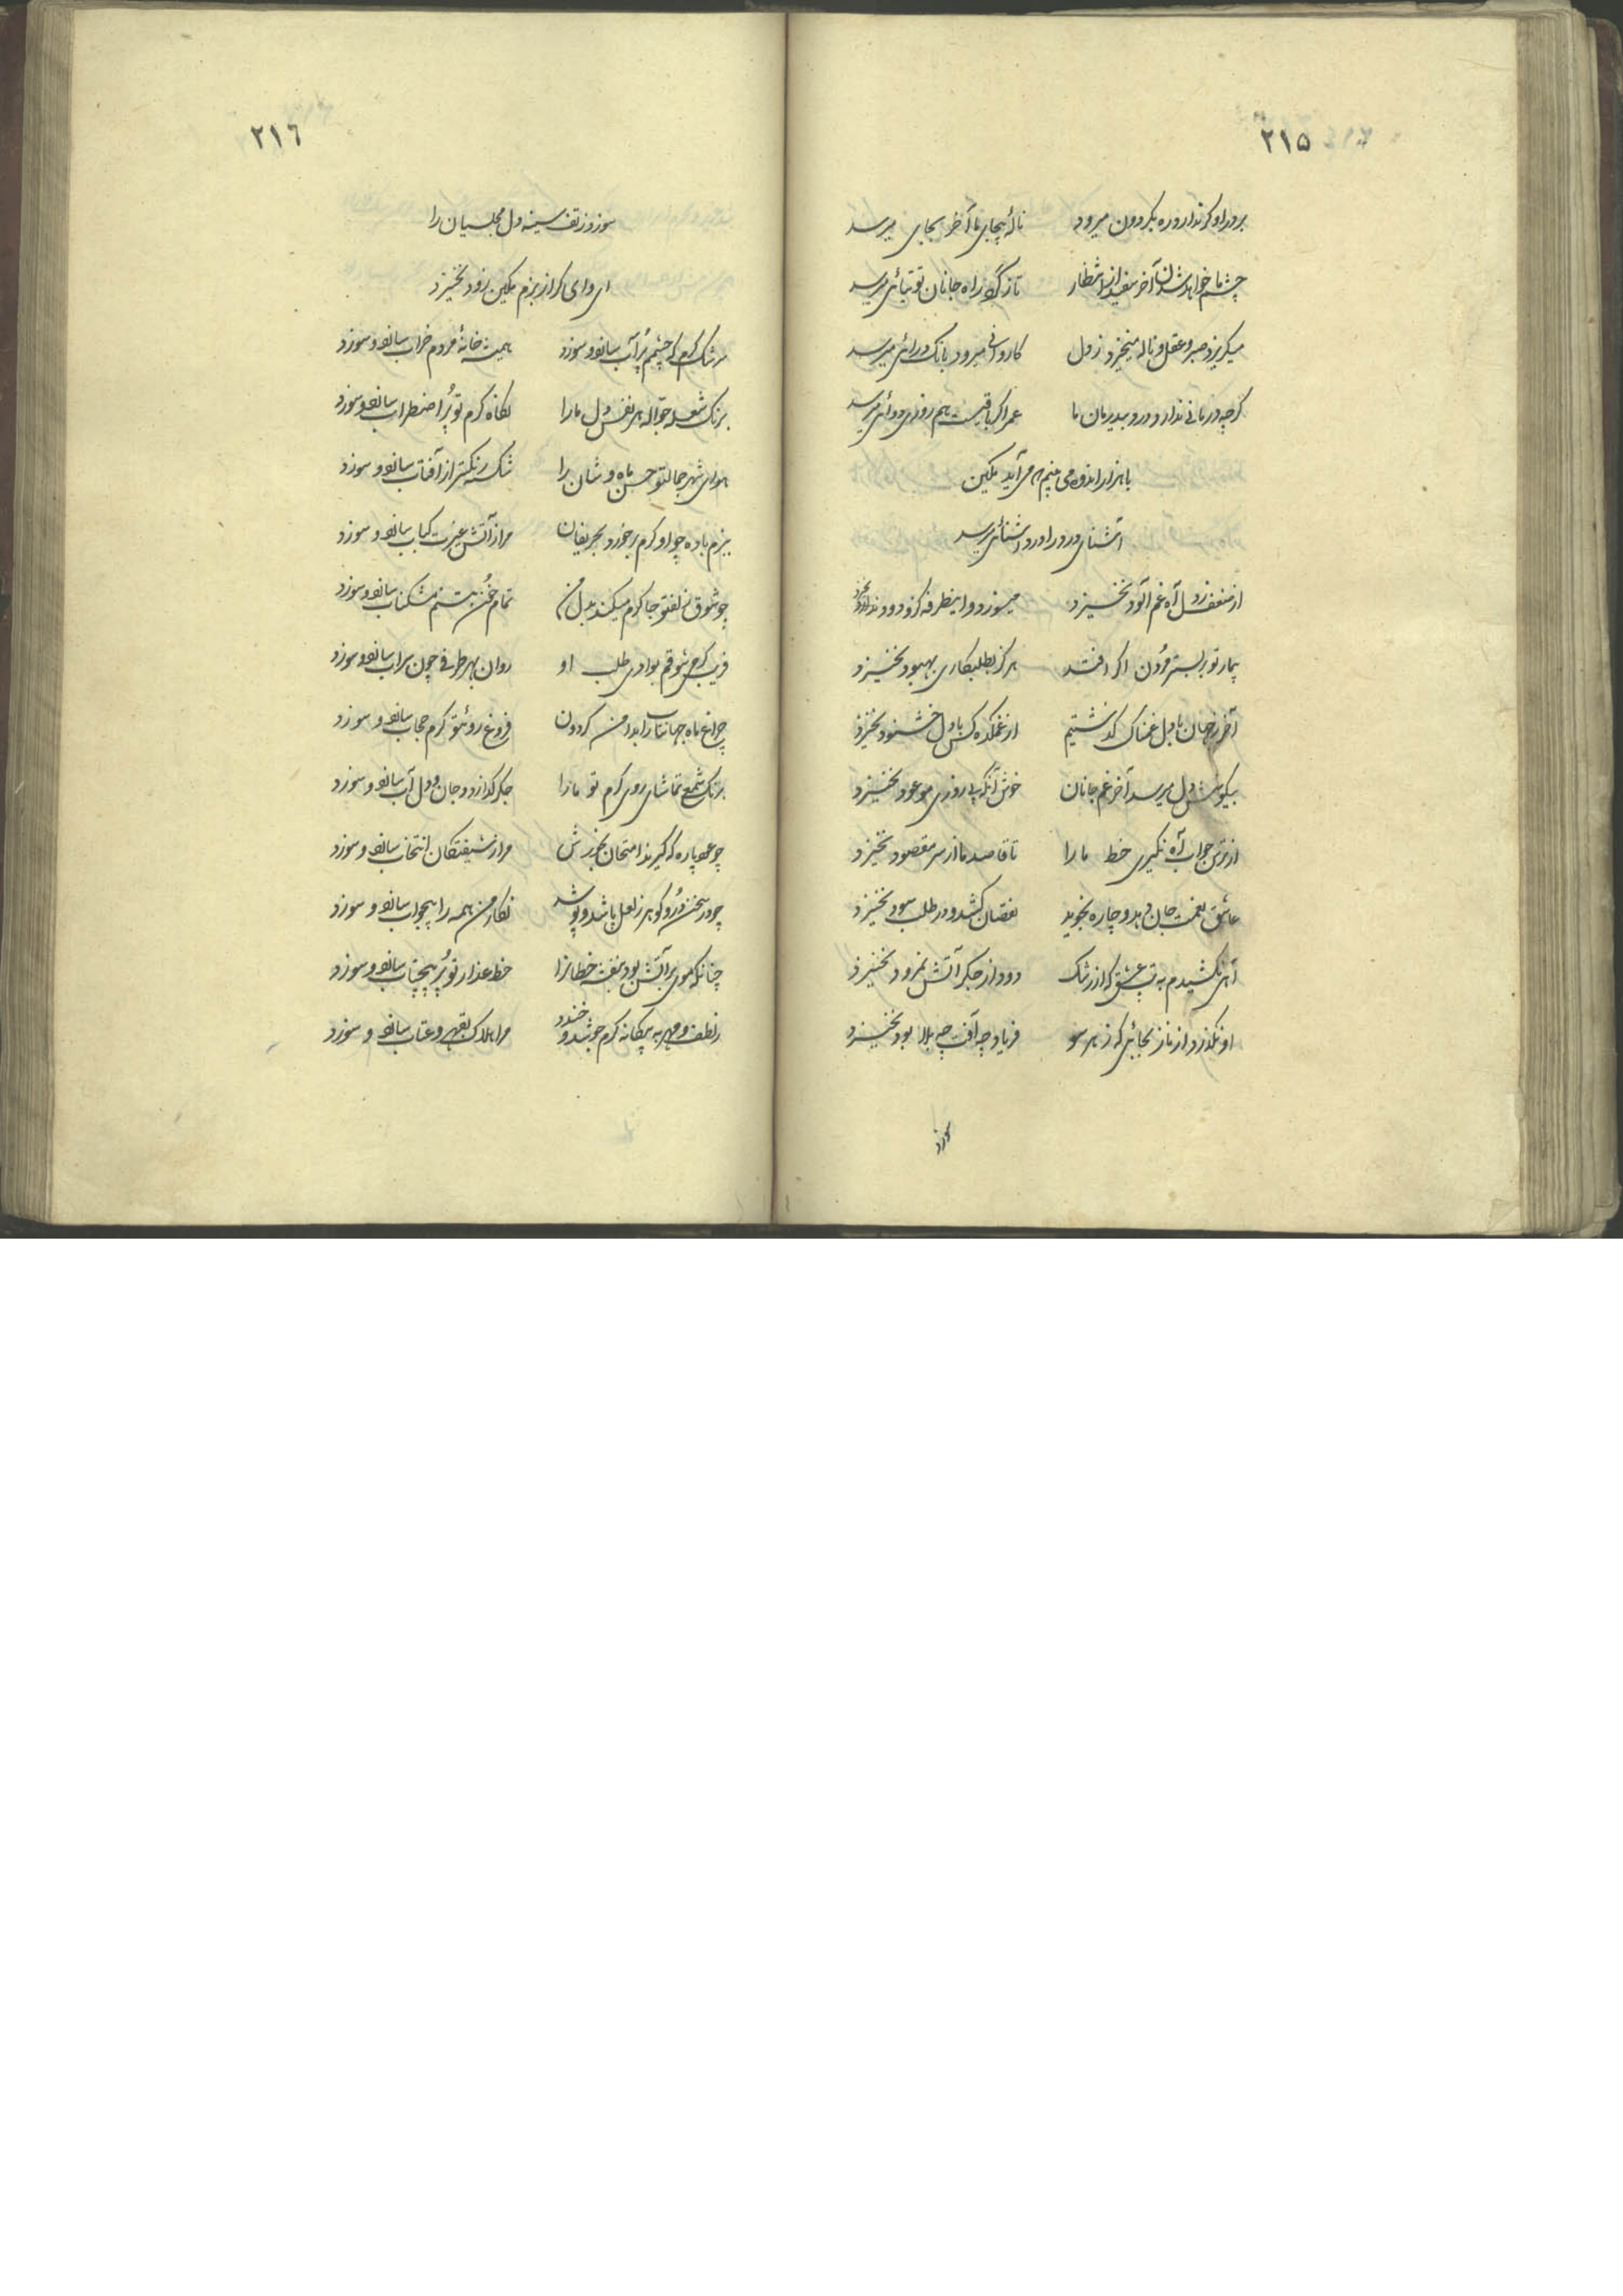 ٢١٥
بر در او گر ندارد ره بگردون میرود    نالهٔ بیجای ما آخر بجای میرسد
چشم ما خواهد شدن آخر سفید از انتظار    تا ز گرد راه جانان توتیائی میرسد
میگریزد صبر و عقل و ناله میخیزد ز دل    کاروانی میرود بانگ درائی میرسد
گرچه درمانی ندارد درد بیدرمان ما    عمر اگر باقیست هم روزی دوائی میرسد
با هزار اندوه می بینم که می آید مکین
آشنای درد را درد آشنائی میرسد
از ضعف ز دل آه غم آلود نخیزد    میسوزد و اینطرفه کزو دود نخیزد
بیمار تو بر بستر مردن اگر افتد    هرگز بطلبکاری بهبود نخیزد
آخر ز جهان با دل غمناک گذشتیم    از غمکده کس با دل خشنود نخیزد
بیکوشش دل میرسد آخر غم جانان    خوش آنکه پی روزی موعود نخیزد
از ترس جواب آه نگیری خط ما را    تا قاصد ما از سر مقصود نخیزد
عاشق بغمت جان دهد و چاره نجوید    نقصان کشد و در طلب سود نخیزد
آهی نکشیدم به تب عشق که از رشک    دود از جگر آتش نمرود نخیزد
او نگذرد از ناز بجائی که ز هر سو    فریاد چه آفت چه بلا بود نخیزد
سوزد
٢١٦
سوزد ز تف سینه دل مجلسیان را
ای وای گر از بزم مکین زود نخیزد
سرشک گرم که چشمم پر آب سازد و سوزد    همیشه خانهٔ مردم خراب سازد و سوزد
برنگ شعله جواله هر نفس دل ما را    نگاه گرم تو پر اضطراب سازد و سوزد
هوای شهر جمالتو حسن ماه وشان را    شکسته رنگتر از آفتاب سازد و سوزد
ببزم باده چو او گرم برخورد بحریفان    مرا ز آتش غیرت کباب سازد و سوزد
چو شوق زلفتو جا گرم میکند بدل من    تمام خون بتنم مشکناب سازد و سوزد
فریب گرمی شوقم بوادی طلب او    روان بهر طرفی چون سراب سازد و سوزد
چراغ ماه جهانتاب را بدامن گردون    فروغ روی تو گرم حجاب سازد و سوزد
برنگ شمع تماشای روی گرم تو ما را    جگر گدازد و جان و دل آب سازد و سوزد
چو عودپاره که گیرند امتحان بخورش    مرا ز شیفتگان انتخاب سازد و سوزد
چو در سخن در و گوهر ز لعل پاشد و پوشد    نگار من همه را بیجواب سازد و سوزد
چنانکه موی بر آتش بود بنفشه خطانرا    خط عذار تو پر پیچ و تاب سازد و سوزد
ز لطف و مهر به بیگانه گرم جوشد و خندد    مرا هلاک بقهر و عتاب سازد و سوزد